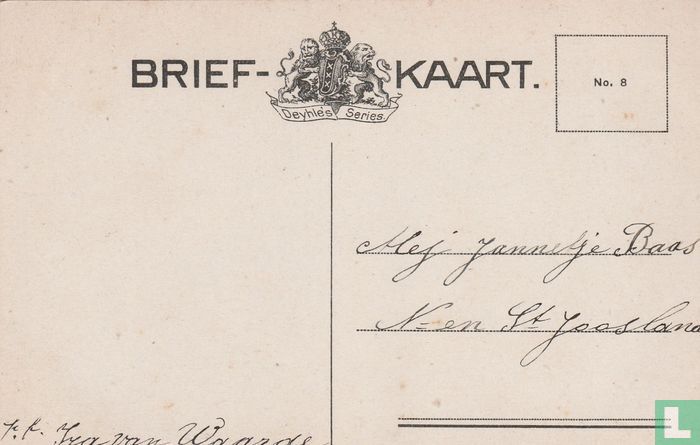 BRIEF-KAART.
Deyhle's Series.
No. 8
Mej Jannetje Baas
N- en St Joosland
van Waarde
catawiki